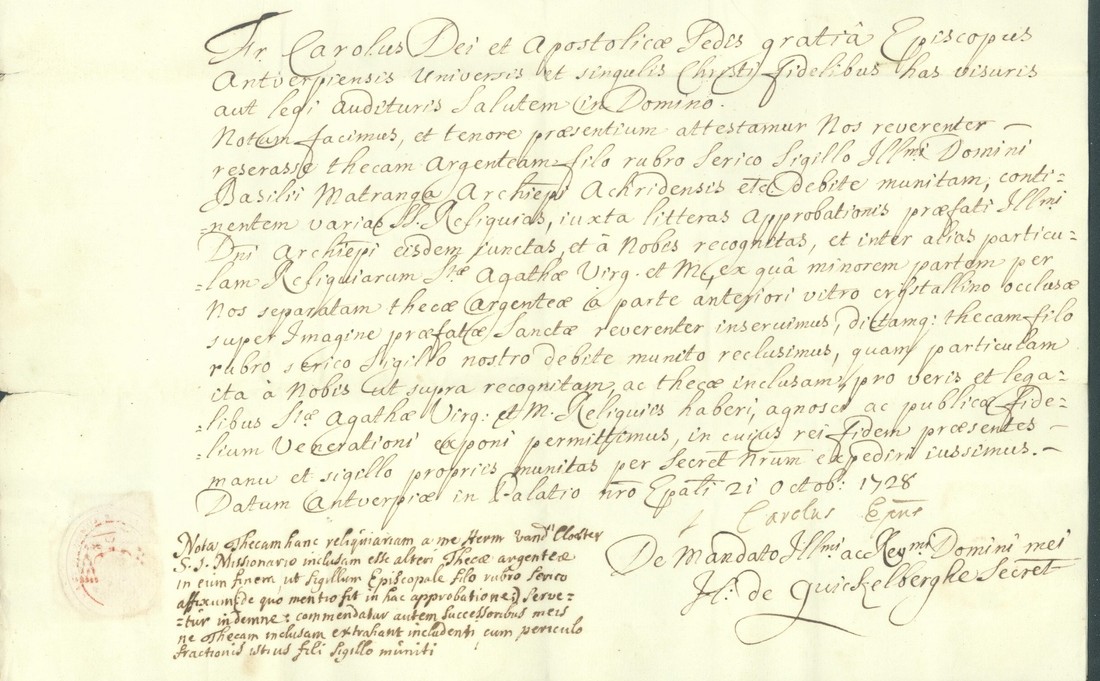 Fr. Carolus Dei et Apostolicæ Sedis gratiâ Episcopus
Antverpiensis Universis et singulis Christi fidelibus has visuris
aut legi audituris Salutem in Domino.
Notum facimus, et tenore præsentium attestamur Nos reverenter
reserasse thecam Argenteam filo rubro Serico Sigillo Illmi Domini
Basilii Matranga Archiepi Achridensis etc. debite munitam, conti=
=nentem varias SS. Reliquias, iuxta litteras Approbationis præfati Illmi
Dni Archiepi eisdem junctas, et à Nobis recognitas, et inter alias particu=
=lam Reliquiarum Stæ Agathæ Virg. et M., ex quâ minorem partem per
Nos separatam thecæ Argenteæ à parte anteriori vitro crystallino occlusæ
super Imagine præfatæ Sanctæ reverenter inseruimus, dictamq: thecam filo
rubro serico Sigillo nostro debite munito reclusimus, quam particulam
ita à Nobis ut supra recognitam, ac thecæ inclusam, pro veris et lega=
=libus Stæ Agathæ Virg: et M. Reliquiis haberi, agnosci ac publicæ Fide=
=lium Venerationi exponi permittimus, in cuius rei fidem præsentes
manu et sigillo propriis munitas per Secret Nrum expediri iussimus.
Datum Antverpiæ in Palatio nro Epali 21 Octob: 1728
Carolus Epus
De Mandato Illmi ac Revmi Domini mei
H. de Quickelberghe Secret
Nota Thecam hanc reliquiariam a me Herm vand Closter
S. J. Missionario inclusam esse alteri Thecæ argenteæ
in eum finem, ut sigillum Episcopale filo rubro serico
affixum (de quo mentio fit in hac approbatione) serve=
=tur indemne: commendatur autem successoribus meis
ne Thecam inclusam extrahant includenti cum periculo
fractionis istius fili sigillo muniti